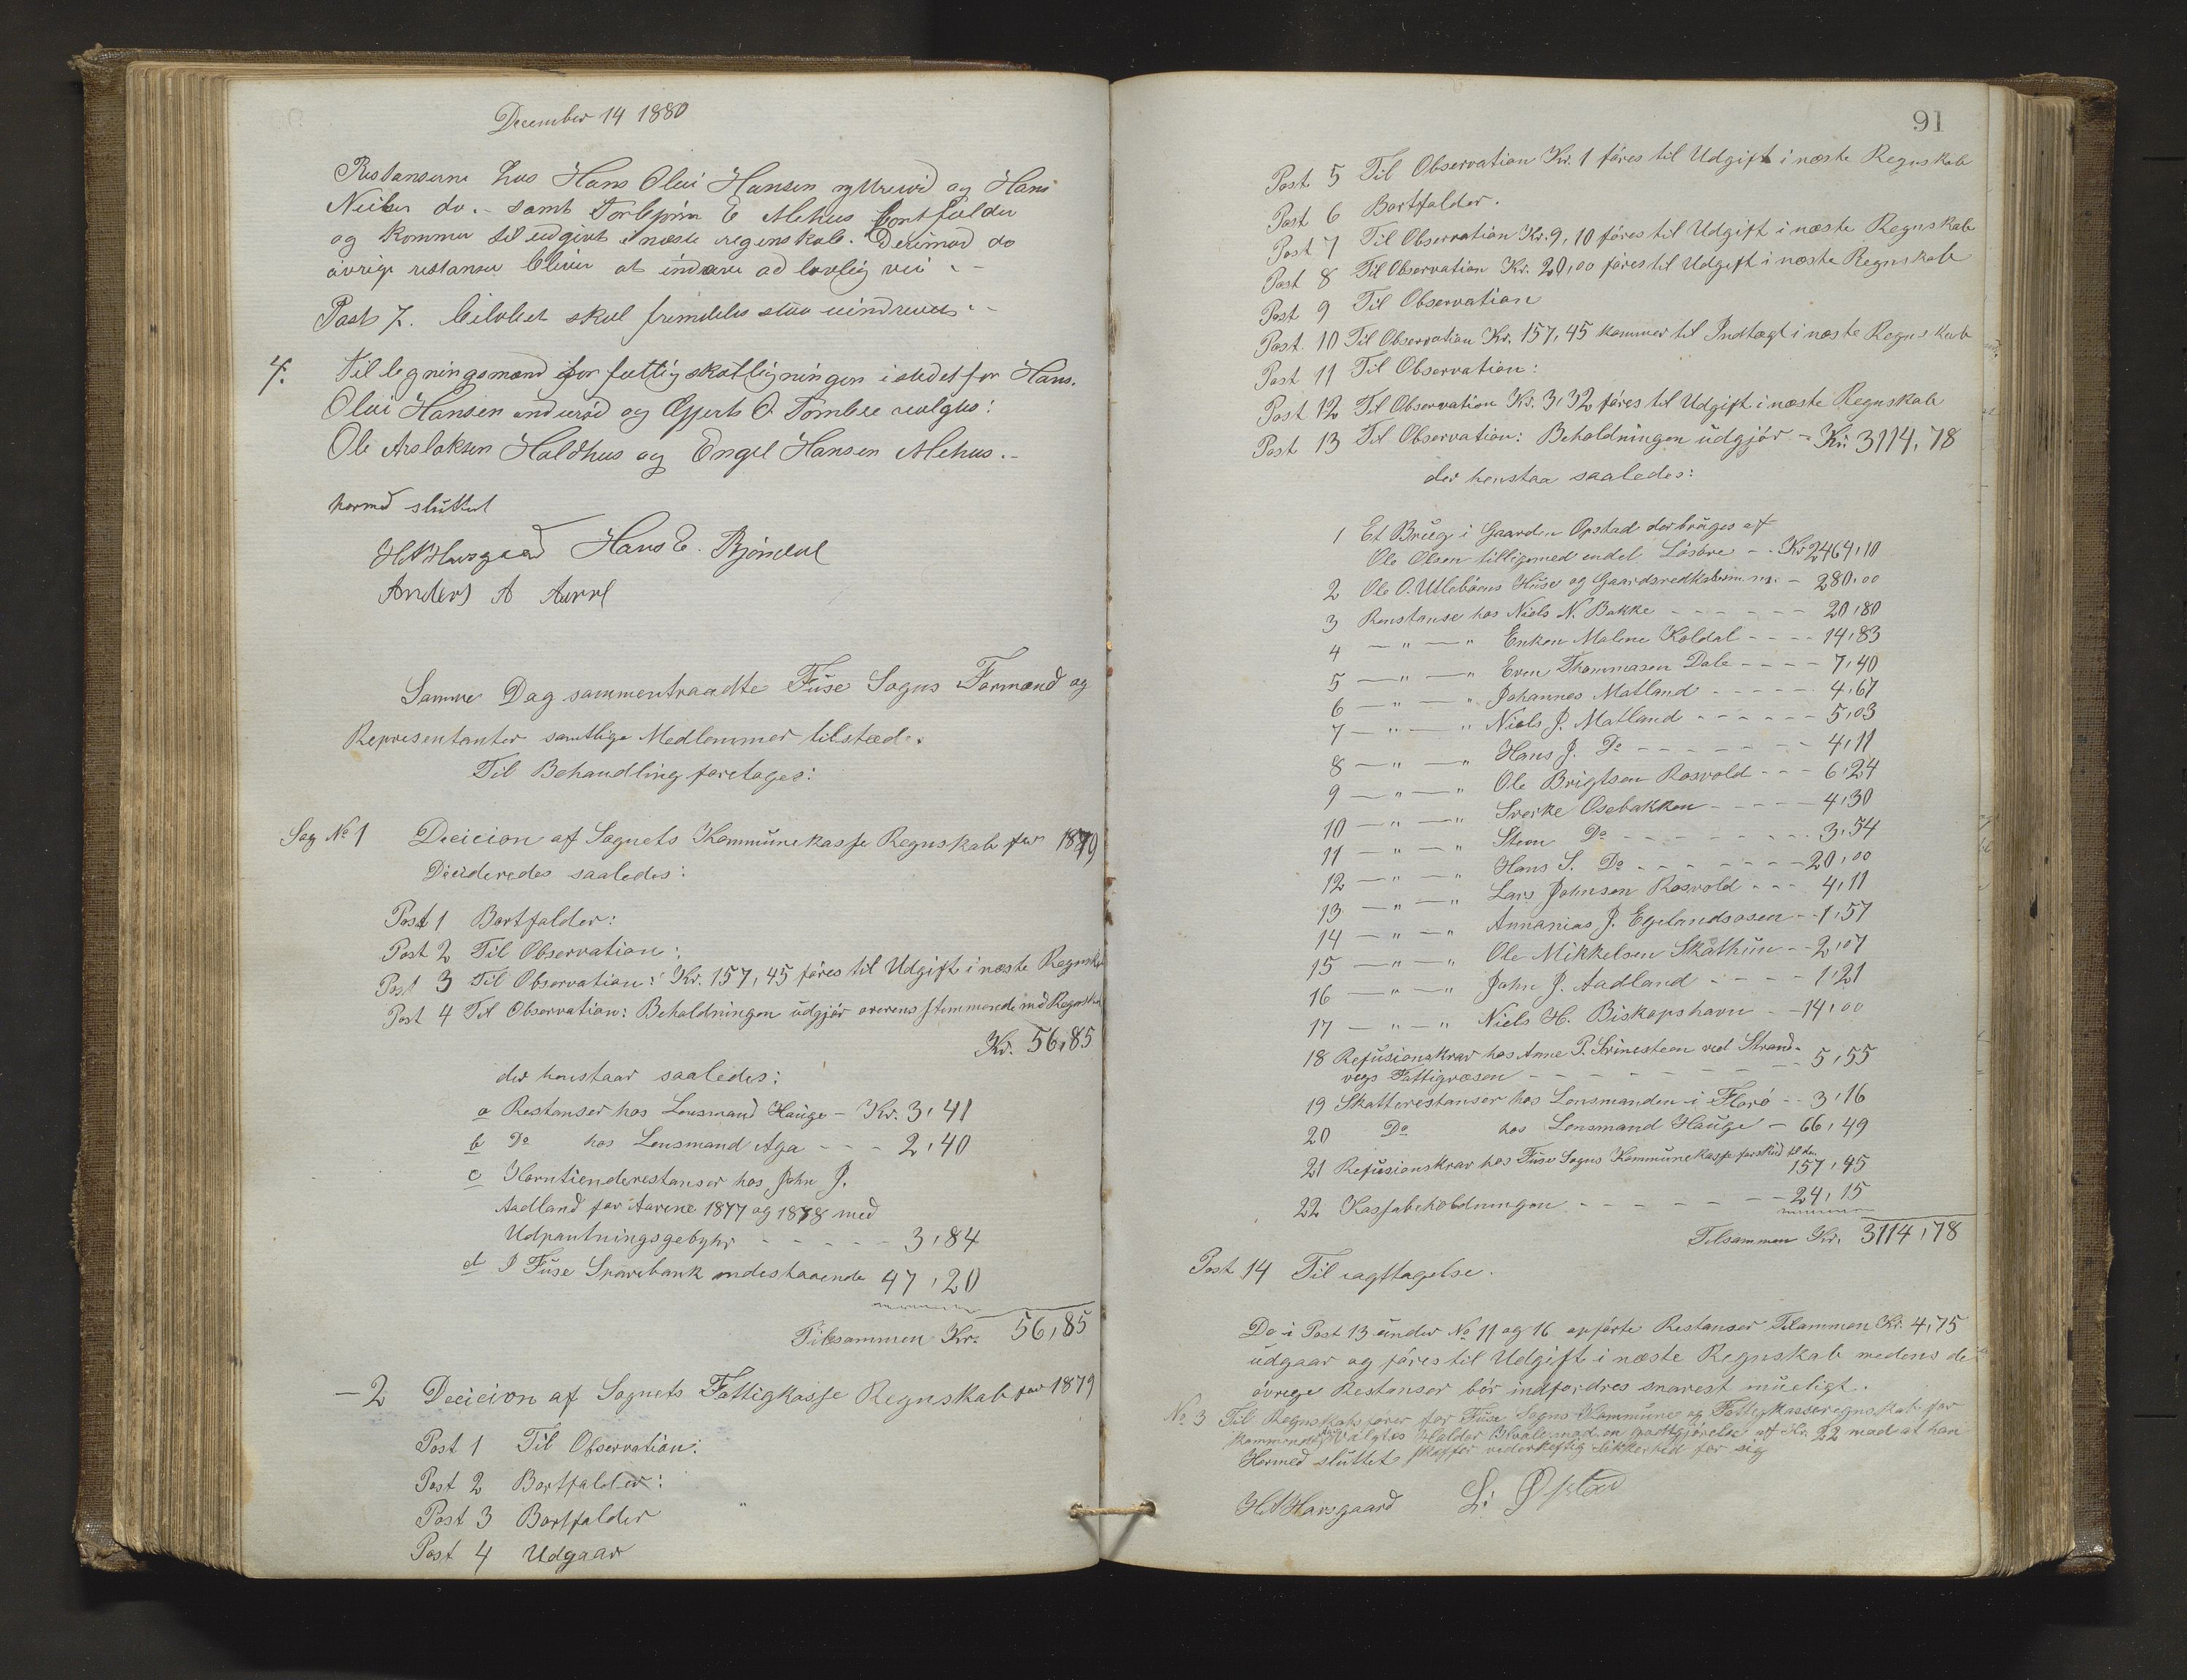 December 14 1880
Restanserne hos Hans Olai Hansen og Hans
Neiber do. – samt E Alehus bortfalder
og kommer til udgivt i næste regenskab. Derimod de
øvrige restanser bliver at inddrive ad lovlig vei. –
Post 7. skal fremdeles staa uindrevet. –
4. Til legningsmænd for fattigskatligningen istedetfor Hans.
Olai Hansen og O. Tømbre valgtes:
Ole Arslaksen Holdhus og Engel Hansen Alehus. –
hermed sluttet
HAHavsgaard Hans E. Bjørndal
Anders A
Samme Dag sammentraadte Fuse Sogns Formænd og
Representanter samtlige Medlemmer tilstæde.
Til Behandling foretages:
Sag No 1 Decicion af Sognets Kommunekasse Regnskab for 1879
Decideredes saaledes:
Post 1 Bortfalder:
Post 2 Til Observation:
Post 3 Til Observation: Kr. 157,45 føres til Udgift i næste Regnskab
Post 4 Til Observation: Beholdningen udgjør overensstemmende med Regnskab
Kr. 56,85
der henstaar saaledes:
a Restanser hos Lensmand Hauge – Kr. 3,41
b Do hos Lensmand Aga – – – 2,40
c Korntienderestanser hos John J.
Aadland for Aarene 1877 og 1878 med
Udpantningsgebyhr – – – – – 3,84
d I Fuse Sparebank indestaaende 47,20
Tilsammen Kr. 56,85
– 2 Decicion af Sognets Fattigkasse Regnskab for 1879
Post 1 Til Observation:
Post 2 Bortfalder:
Post 3 Bortfalder "
Post 4 Udgaar
91
Post 5 Til Observation Kr. 1 føres til Udgift i næste Regnskab
Post 6 Bortfalder.
Post 7 Til Observation Kr. 9,10 føres til Udgift i næste Regnskab
Post 8 Til Observation Kr. 20,00 føres til Udgift i næste Regnskab
Post 9 Til Observation
Post. 10 Til Observation Kr. 157,45 kommer til Indtægt i næste Regnskab
Post 11 Til Observation:
Post 12 Til Observation Kr. 3,32 føres til Udgift i næste Regnskab
Post 13 Til Observation: Beholdningen udgjør – Kr. 3114,78
der henstaa saaledes:
1 Et Brug i Gaarden Opstad der bruges af
Ole Olsen tilligemed endel Løsøre – . Kr 2464,10
2 Ole O. Utlebøens Huse og Gaardsredskaber m. m. – 280,00
3 Renstanse hos Niels N. Bakke – – – – – – 20,80
4 – " – " Enken Malene Koldal – – – – 14,83
5 – " – " Even Thommasen Dale – – – – 7,40
6 – " – " Johannes Matland – – – – – 4,67
7 – " – " Niels J. Matland – – – – – – 5,03
8 – " – " Hans J. Do – – – – – – – – 4,11
9 – " – " Ole Brigtsen Rosvold – – – 6,24
10 – " – " Sverke Osebakken – – – – – 4,30
11 – " – " Steen Do – – – – – – – – – 3,54
12 – " – " Hans S. Do – – – – – – – 20,00
13 – " – " Lars Johnsen Rosvold – – – 4,11
14 – " – " Annanias J. Egelandsosen – – 1,57
15 – " – " Ole Mikkelsen Skåthun – – 2,07
16 – " – " John J. Aadland – – – – 1,21
17 – " – " Niels H. Biskopshavn – – 14,00
18 Refusionskrav hos Anne P. Svinesteen ved Strand-
vigs Fattigvæsen – – – – – – – – 5,55
19 Skatterestanser hos Lensmanden i Florø – – 3,16
20 Do hos Lensmand Hauge – 66,49
21 Refusionskrav hos Fuse Sogns Kommunekasse forskud til den 157,45
22 Kassabeholdningen – – – – – – – – 24,15
Tilsammen Kr. 3114,78
Post 14 Til iagttagelse.
De i Post 13 under No 11 og 16 opførte Restanser Tilsammen Kr. 4,75
udgaar og føres til Udgift i næste Regnskab medens de
øvrige Restanser bør indfordres snarest mueligt.
No 3 Til Regnskabsfører for Fuse Sogns Kommune og Fattigkasseregnskab for
kommende valgtes Haldor med en godtgjørelse af Kr. 22 mod at han
Hermed sluttet skaffer vederheftig sikkerhed for sig
HAHavsgaard L: